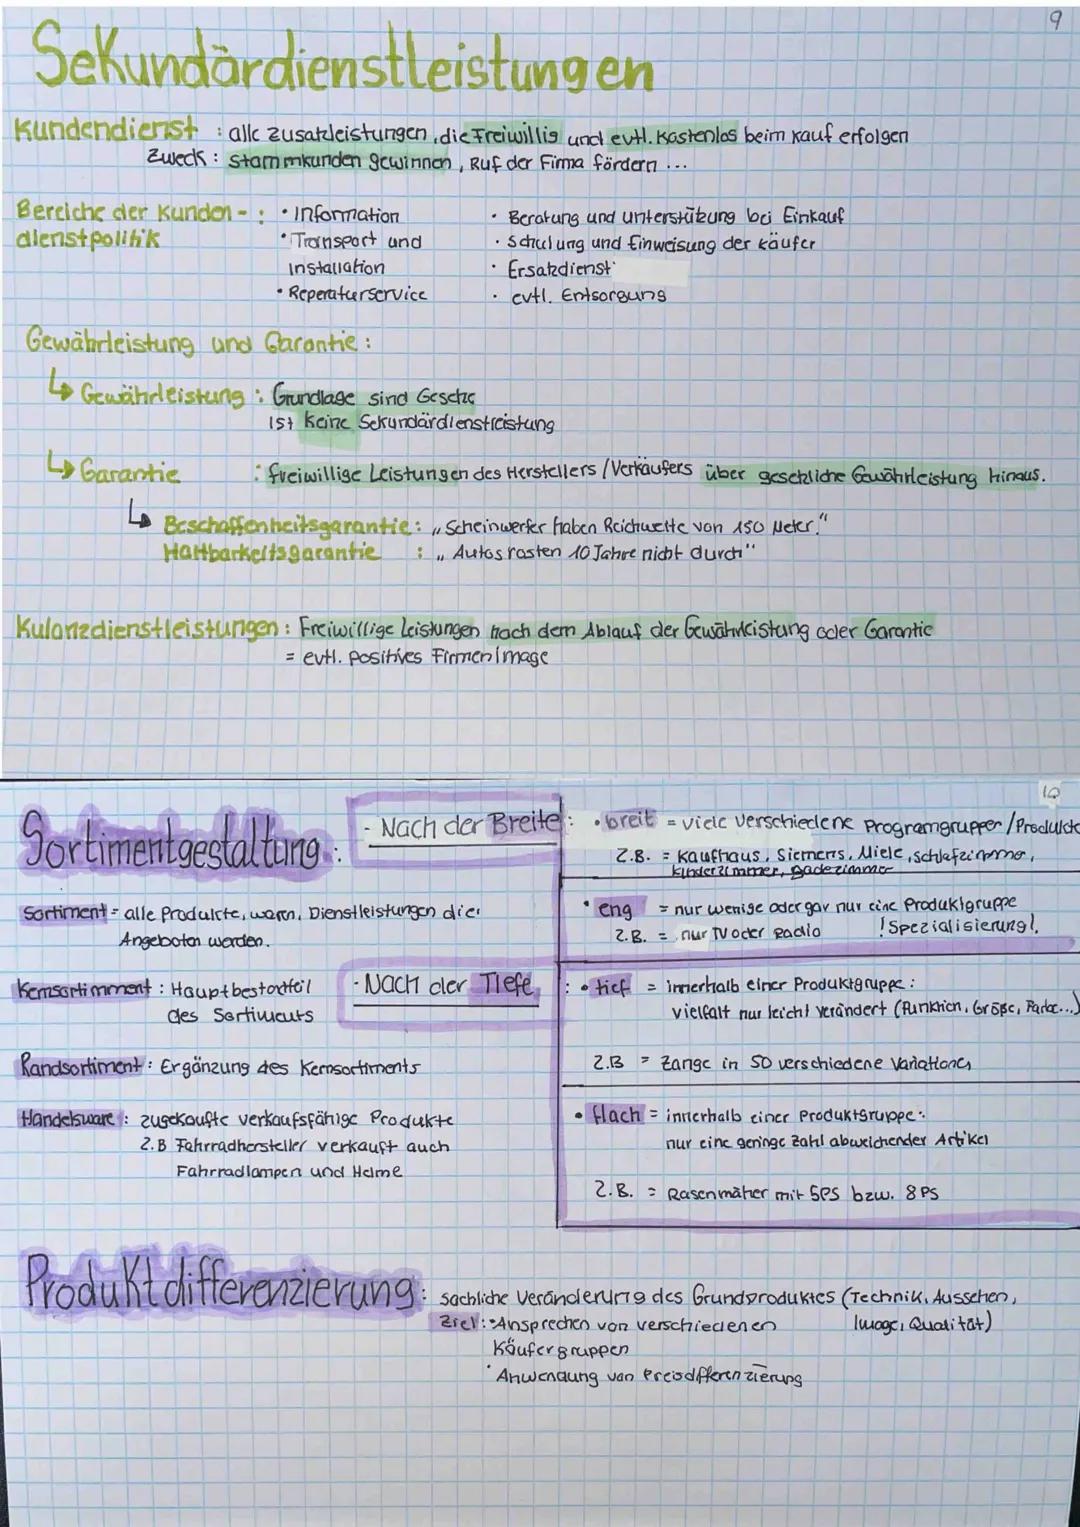 9
Sekundärdienstleistungen
Kundendienst : alle Zusatzleistungen, die Freiwillig und evtl. Kostenlos beim Kauf erfolgen
Zweck : Stammkunden gewinnen, Ruf der Firma fördern ...
Bereiche der Kunden- : • Information
dienstpolitik
• Transport und
Installation
• Reperaturservice
• Beratung und unterstützung bei Einkauf
• Schulung und Einweisung der Käufer
• Ersatzdienst
• evtl. Entsorgung
Gewährleistung und Garantie :
↳ Gewährleistung : Grundlage sind Gesetze
ist keine Sekundärdienstleistung
↳ Garantie : freiwillige Leistungen des Herstellers / Verkäufers über gesetzliche Gewährleistung hinaus.
↳ Beschaffenheitsgarantie : „Scheinwerfer haben Reichweite von 150 Meter."
Haltbarkeitsgarantie : „Autos rosten 10 Jahre nicht durch"
Kulanzdienstleistungen : Freiwillige Leistungen nach dem Ablauf der Gewährleistung oder Garantie
= evtl. positives Firmenimage
10
Sortimentgestaltung :
Sortiment = alle Produkte, waren, Dienstleistungen die
Angeboten werden.
Kernsortimment : Hauptbestandteil
des Sortiments
Randsortiment : Ergänzung des Kernsortiments
Handelsware : zugekaufte verkaufsfähige Produkte
z.B Fahrradhersteller verkauft auch
Fahrradlampen und Helme
- Nach der Breite : • breit = viele verschiedene Programgruppen / Produkte
z.B. = Kaufhaus, Siemens, Miele, Schlafzimmer,
Kinderzimmer, Badezimmer
• eng = nur wenige oder gar nur eine Produktgruppe
z.B. = nur TV oder Radio !Spezialisierung!
- Nach der Tiefe : • tief = innerhalb einer Produktgruppe :
vielfalt nur leicht verändert (Funktion, Größe, Farbe...)
z.B = Zange in 50 verschiedene Variationen
• flach = innerhalb einer Produktgruppe :
nur eine geringe Zahl abweichender Artikel
z.B. = Rasenmäher mit 5PS bzw. 8PS
Produktdifferenzierung : sachliche Veränderung des Grundproduktes (Technik, Aussehen,
Image, Qualität)
Ziel : • Ansprechen von verschiedenen
Käufergruppen
• Anwendung von Preisdifferenzierung